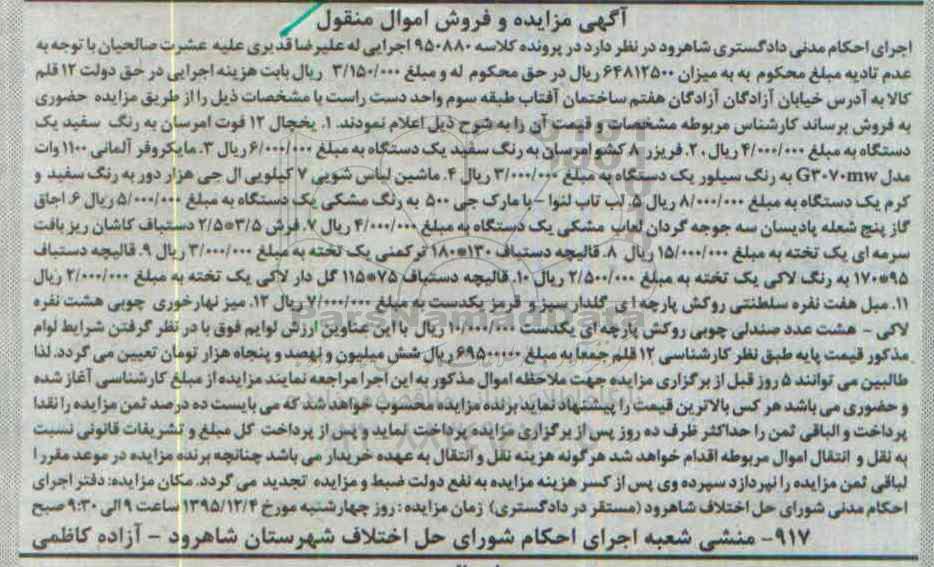 آگهی مزایده و فروش اموال منقول
اجرای احکام مدنی دادگستری شاهرود در نظر دارد در پرونده کلاسه ۹۵۰۸۸۰ اجرایی له علیرضا قدیری علیه عشرت صالحیان با توجه به
عدم تادیه مبلغ محکوم به به میزان ۶۴۸۱۲۵۰۰ ریال در حق محکوم له و مبلغ ۳/۱۵۰/۰۰۰ ریال بابت هزینه اجرایی در حق دولت ۱۲ قلم
کالا به آدرس خیابان آزادگان آزادگان هفتم ساختمان آفتاب طبقه سوم واحد دست راست با مشخصات ذیل را از طریق مزایده حضوری
به فروش برساند کارشناس مربوطه مشخصات و قیمت آن را به شرح ذیل اعلام نمودند. ۱. یخچال ۱۲ فوت امرسان به رنگ سفید یک
دستگاه به مبلغ ۴/۰۰۰/۰۰۰ ریال ۲۰. فریزر ۸ کشو امرسان به رنگ سفید یک دستگاه به مبلغ ۶/۰۰۰/۰۰۰ ریال ۳. مایکروفر آلمانی ۱۱۰۰ وات
مدل G۳۰۷۰mw به رنگ سیلور یک دستگاه به مبلغ ۳/۰۰۰/۰۰۰ ریال ۴. ماشین لباس شویی ۷ کیلویی ال جی هزار دور به رنگ سفید و
کرم یک دستگاه به مبلغ ۸/۰۰۰/۰۰۰ ریال ۵. لب تاب لنوا - با مارک جی ۵۰۰ به رنگ مشکی یک دستگاه به مبلغ ۵/۰۰۰/۰۰۰ ریال ۶. اجاق
گاز پنج شعله پادیسان سه جوجه گردان لعاب مشکی یک دستگاه به مبلغ ۴/۰۰۰/۰۰۰ ریال ۷. فرش ۳/۵*۲/۵ دستباف کاشان ریز بافت
سرمه ای یک تخته به مبلغ ۱۵/۰۰۰/۰۰۰ ریال ۸. قالیچه دستباف ۱۳۰*۱۸۰ ترکمنی یک تخته به مبلغ ۳/۰۰۰/۰۰۰ ریال ۹. قالیچه دستباف
۹۵*۱۷۰ به رنگ لاکی یک تخته به مبلغ ۲/۵۰۰/۰۰۰ ریال ۱۰. قالیچه دستباف ۷۵*۱۱۵ گل دار لاکی یک تخته به مبلغ ۲/۰۰۰/۰۰۰ ریال
۱۱. مبل هفت نفره سلطنتی روکش پارچه ای گلدار سبز و قرمز یکدست به مبلغ ۷/۰۰۰/۰۰۰ ریال ۱۲. میز نهارخوری چوبی هشت نفره
لاکی - هشت عدد صندلی چوبی روکش پارچه ای یکدست ۱۰/۰۰۰/۰۰۰ ریال با این عناوین ارزش لوایم فوق با در نظر گرفتن شرایط لوام
مذکور قیمت پایه طبق نظر کارشناسی ۱۲ قلم جمعا به مبلغ ۶۹۵۰۰۰۰۰ ریال شش میلیون و نهصد و پنجاه هزار تومان تعیین می گردد. لذا
طالبین می توانند ۵ روز قبل از برگزاری مزایده جهت ملاحظه اموال مذکور به این اجرا مراجعه نمایند مزایده از مبلغ کارشناسی آغاز شده
و حضوری می باشد هر کس بالاترین قیمت را پیشنهاد نماید برنده مزایده محسوب خواهد شد که می بایست ده درصد ثمن مزایده را نقدا
پرداخت و الباقی ثمن را حداکثر ظرف ده روز پس از برگزاری مزایده پرداخت نماید و پس از پرداخت کل مبلغ و تشریفات قانونی نسبت
به نقل و انتقال اموال مربوطه اقدام خواهد شد هرگونه هزینه نقل و انتقال به عهده خریدار می باشد چنانچه برنده مزایده در موعد مقرر ا
لباقی ثمن مزایده را نپردازد سپرده وی پس از کسر هزینه مزایده به نفع دولت ضبط و مزایده تجدید می گردد. مکان مزایده: دفتر اجرای
احکام مدنی شورای حل اختلاف شاهرود (مستقر در دادگستری) زمان مزایده : روز چهارشنبه مورخ ۱۳۹۵/۱۲/۴ ساعت ۹ الی ۹:۳۰ صبح
۹۱۷- منشی شعبه اجرای احکام شورای حل اختلاف شهرستان شاهرود - آزاده کاظمی
ParsNamadData